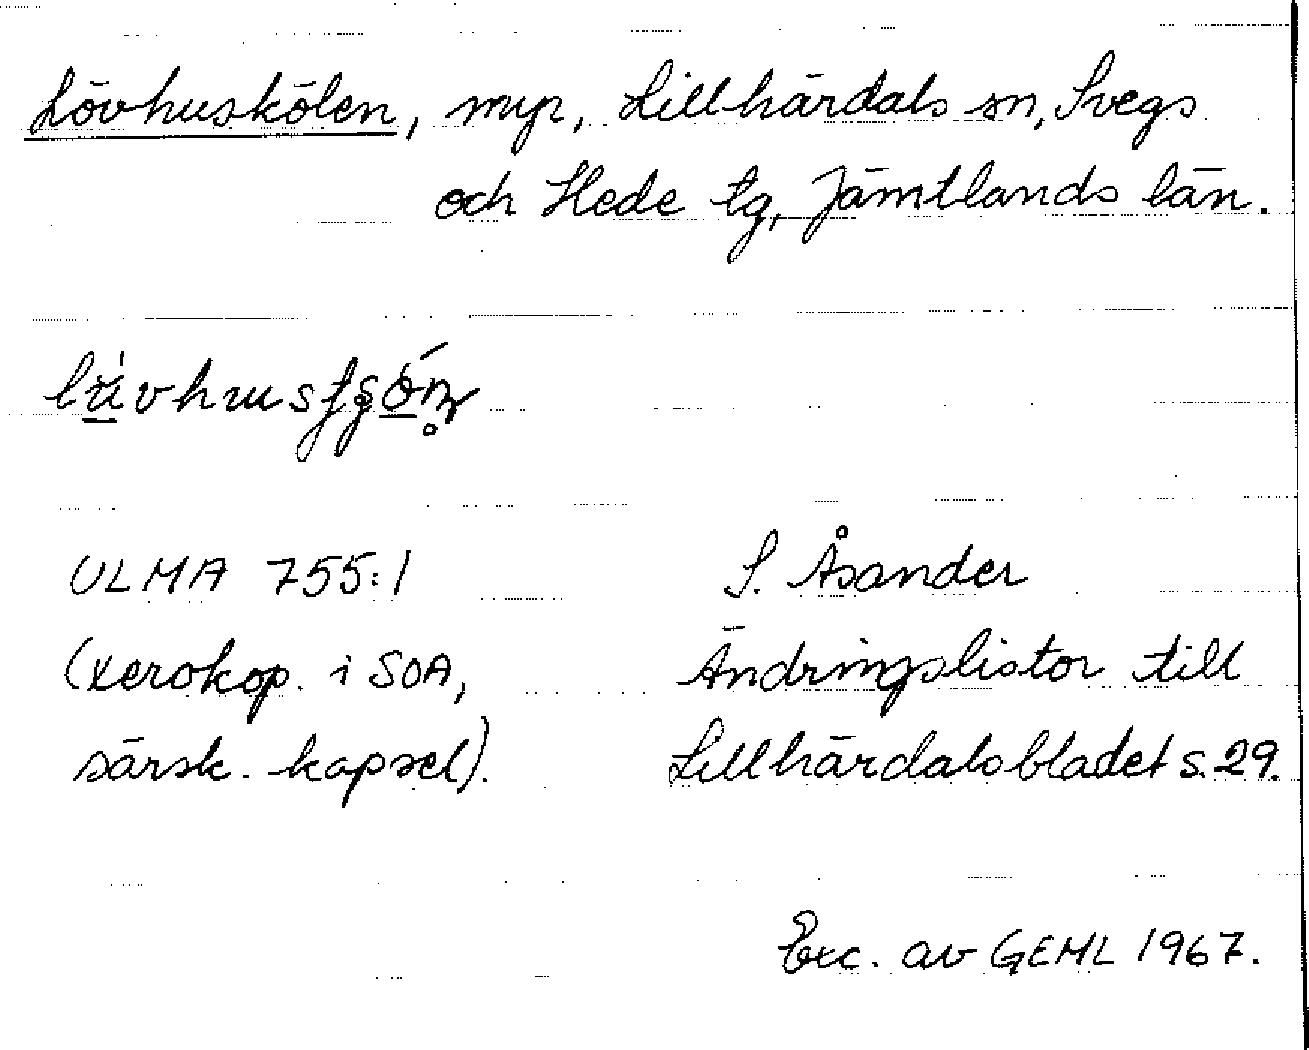 Lövhuskölen, myr, Lillhärdals sn, Svegs
och Hede tg, Jämtlands län.
ULMA 755:1
S. Åsander
(xerokop. i SOA,
Ändringslistor till
särsk. kapsel).
Lillhärdalsbladet s. 29.
Exc. av GEML 1967.